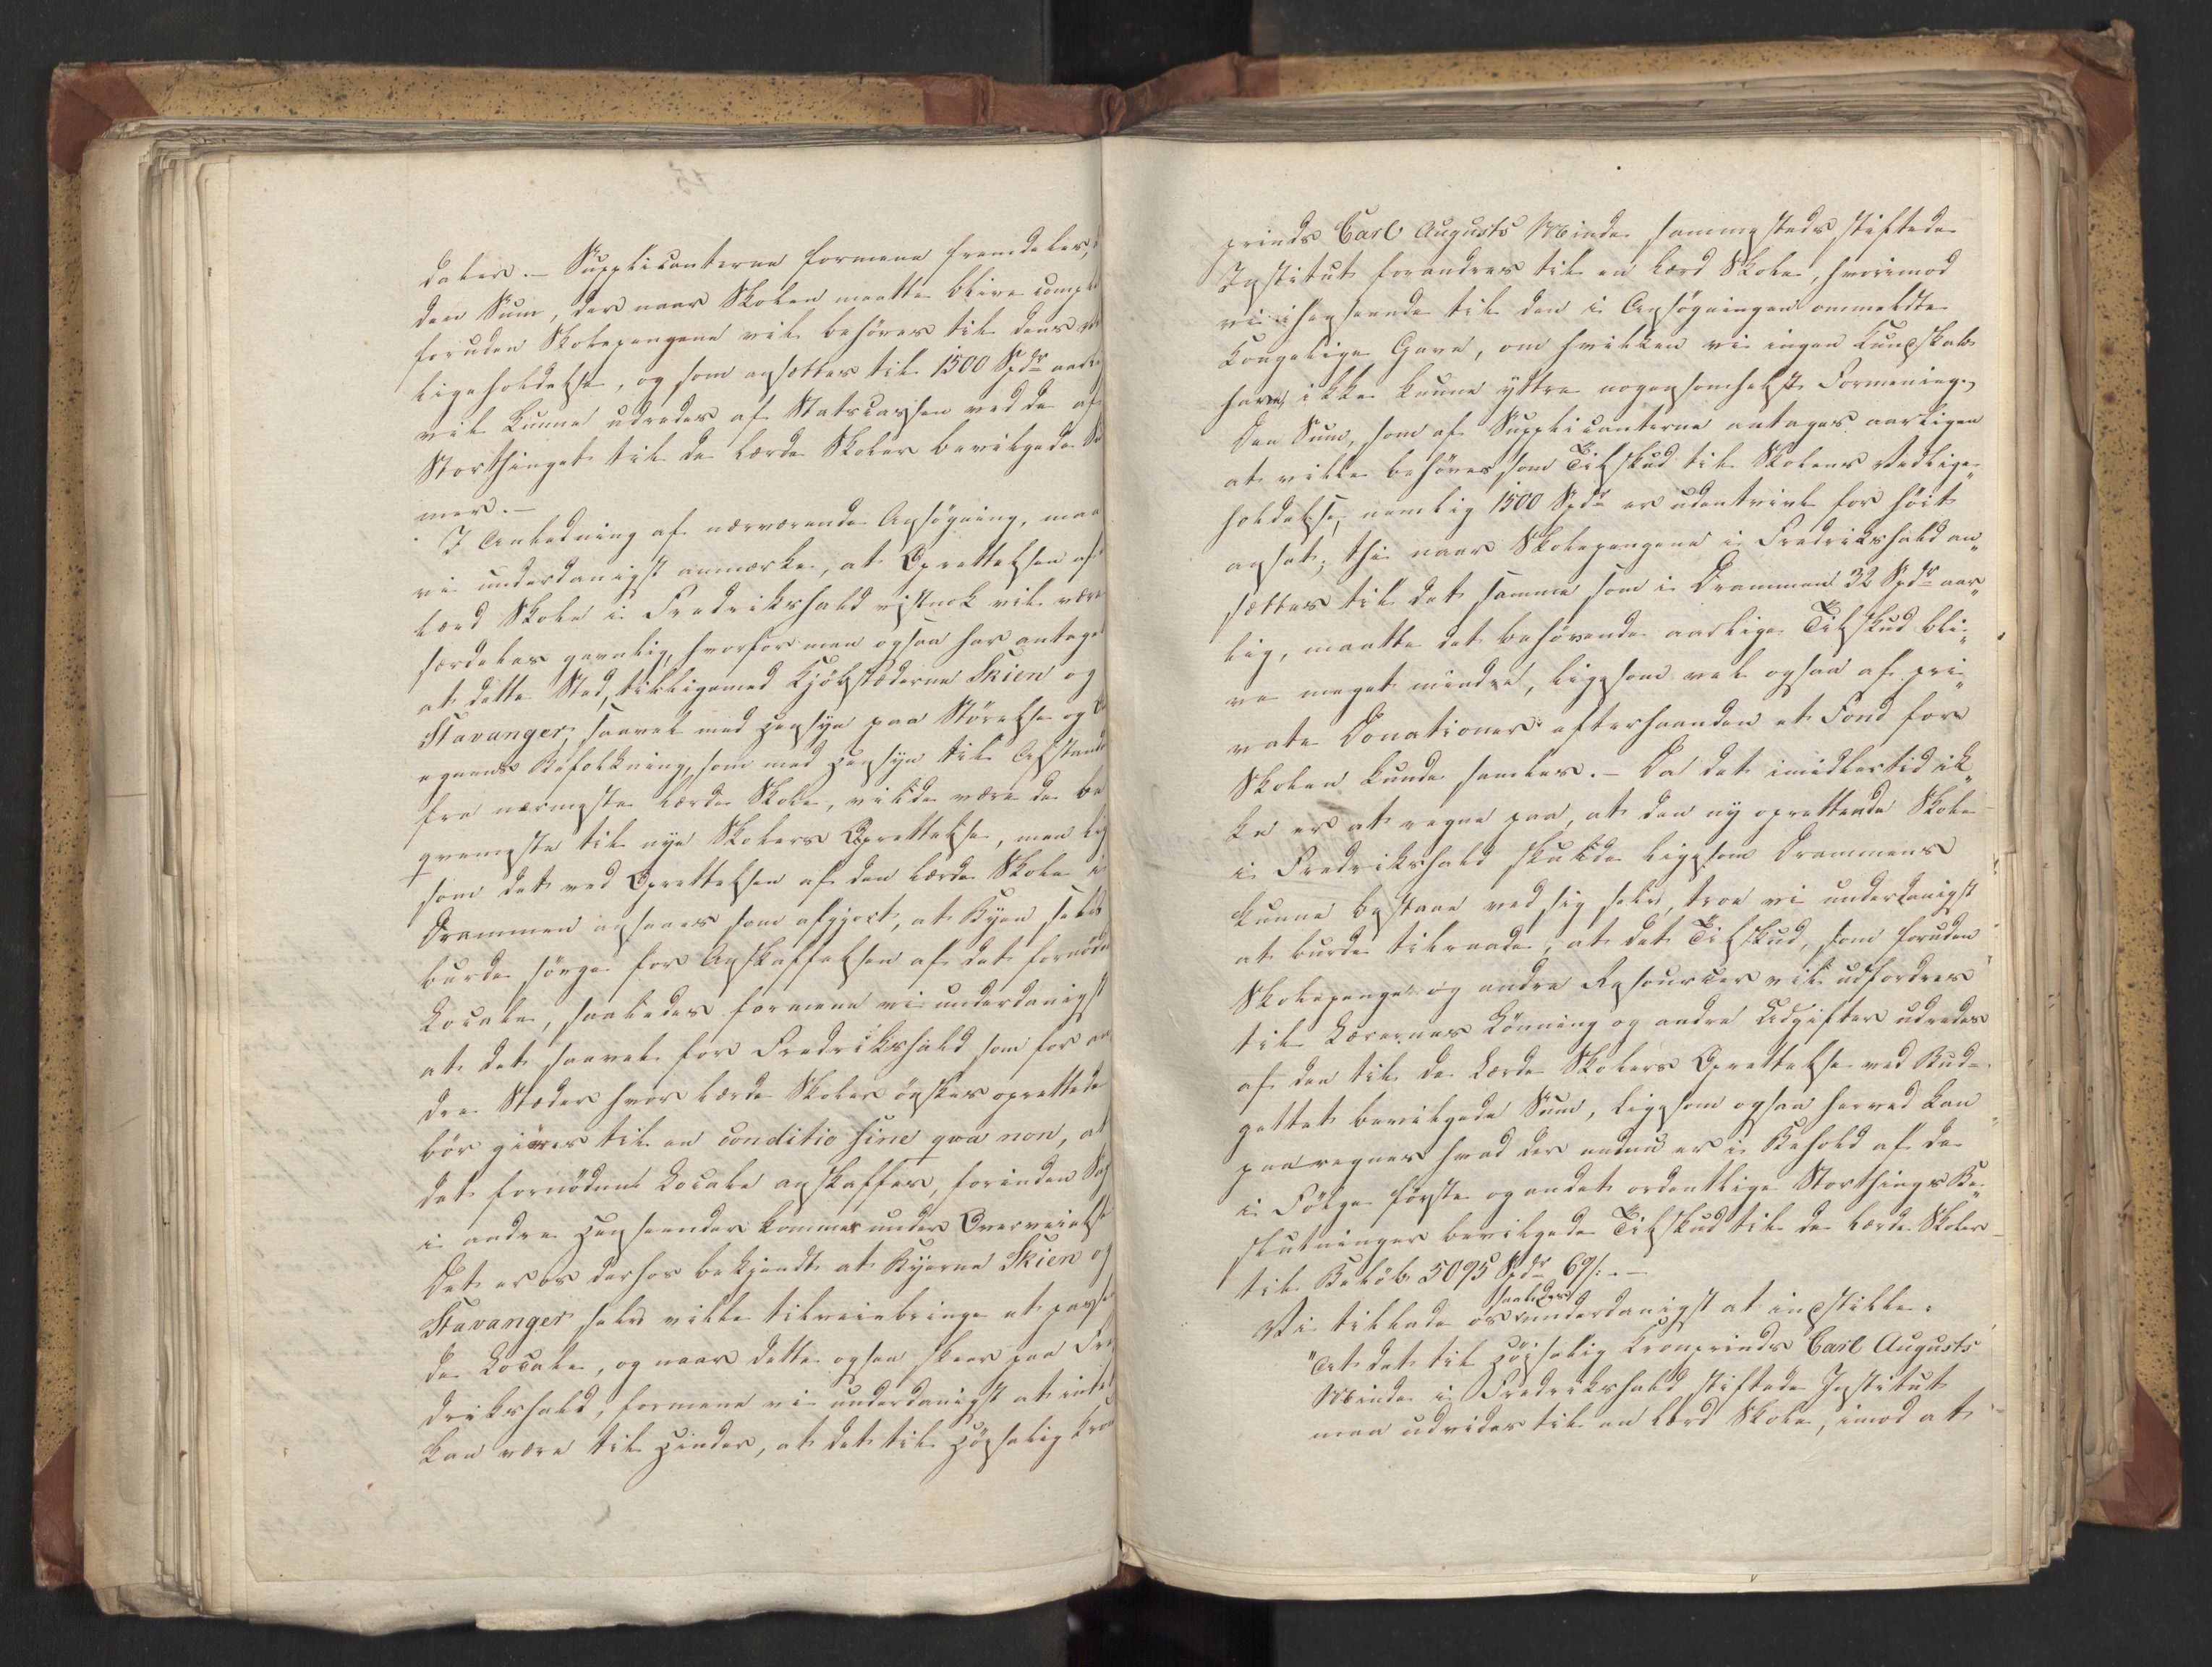 daler. — Supplicanterne formene fremdeles,
den Sum, der naar Skolen maatte blive comple
foruden Skolepengene vil behöves til dens ved
ligeholdelse, og som ansættes til 1500 Spdr aarl
vil kunne udredes af Statscassen ved de af
Storthinget til de lærde Skoler bevilgede Su
mer. —
I Anledning af nærværende Ansögning, maa
vi underdanigst anmærke, at Oprettelsen af
lærd Skole i Fredrikshald vistnok vil være
særdeles gavnlig, hvorfor man ogsaa har antaget
at dette Sted, tilligemed Kjöbstæderne Skien og
Stavanger, saavel med Hensyn paa Störelse og
egnens Befolkning, som med Hensyn til Afstande
fra nærmeste lærde Skole, vilde være de be
qvemste til nye Skolers Oprettelse, men lig
som det ved Oprettelsen af den lærde Skole i
Drammen ansaaes som afgjort, at Byen selv
burde sörge for Anskaffelsen af det fornödne
Locale, saaledes formene vi underdanigst
at det saavel for Fredrikshald som for an
dre Stæder hvor lærde Skoler önskes oprettede
bör gjöres til en conditio sine qva non, at
det fornödne Locale anskaffes, forinden Sag
i andre Henseender kommer under Overveielse
Det er os derhos bekjendt at Byerne Skien og
Stavanger selv ville tilveiebringe et passe
de Locale, og naar dette ogsaa skeer paa Fre
drikshald, formene vi underdanigst at intet
kan være til Hinder, at det til Höisalig Kron
prinds Carl Augusts Minde sammesteds stiftede
Institut forandres til en lærd Skole, hvorimod
vi i Henseende til den i Ansögningen ommeldte
Kongelige Gave, om hvilken vi ingen Kundskab
have, ikke kunne yttre nogensomhelst Formening.
Den Sum, som af Supplicanterne antages aarligen
at ville behöves som Tilskud til Skolens Vedlige„
holdelse, nemlig 1500 Spdr er udentvivl for höit
ansat; thi naar Skolepengene i Fredrikshald an„
sættes til det samme som i Drammen 32 Spdr aar„
lig, maatte det behövende aarlige Tilskud bli„
ve meget mindre, ligesom vel ogsaa af pri„
vate Donationer efterhaanden et Fond for
Skolen kunde samles. — Da det imidlertid ik„
ke er at regne paa, at den ny oprettende Skole
i Fredrikshald skulde ligesom Drammens
kunne bestaae ved sig selv, troe vi underdanigst
at burde tilraade, at det Tilskud, som foruden
Skolepenge og andre Resourcer vil udfordres
til Lærernes Lönning og andre Udgifter udredes
af den til de lærde Skolers Oprettelse ved Bud„
gettet bevilgede Sum, ligesom ogsaa herved kan
paaregnes hvad der endnu er i Behold af de
i Fölge förste og andet ordentlige Storthings Be„
slutninger bevilgede Tilskud til de lærde Skoler
til Belöb 5095 Spdr 69/. —
Vi tillade os saaledes underdanigst at indstille:
"At det til Höisalig Kronprinds Carl Augusts
Minde i Fredrikshald stiftede Institut
maa udvides til en lærd Skole, imod at